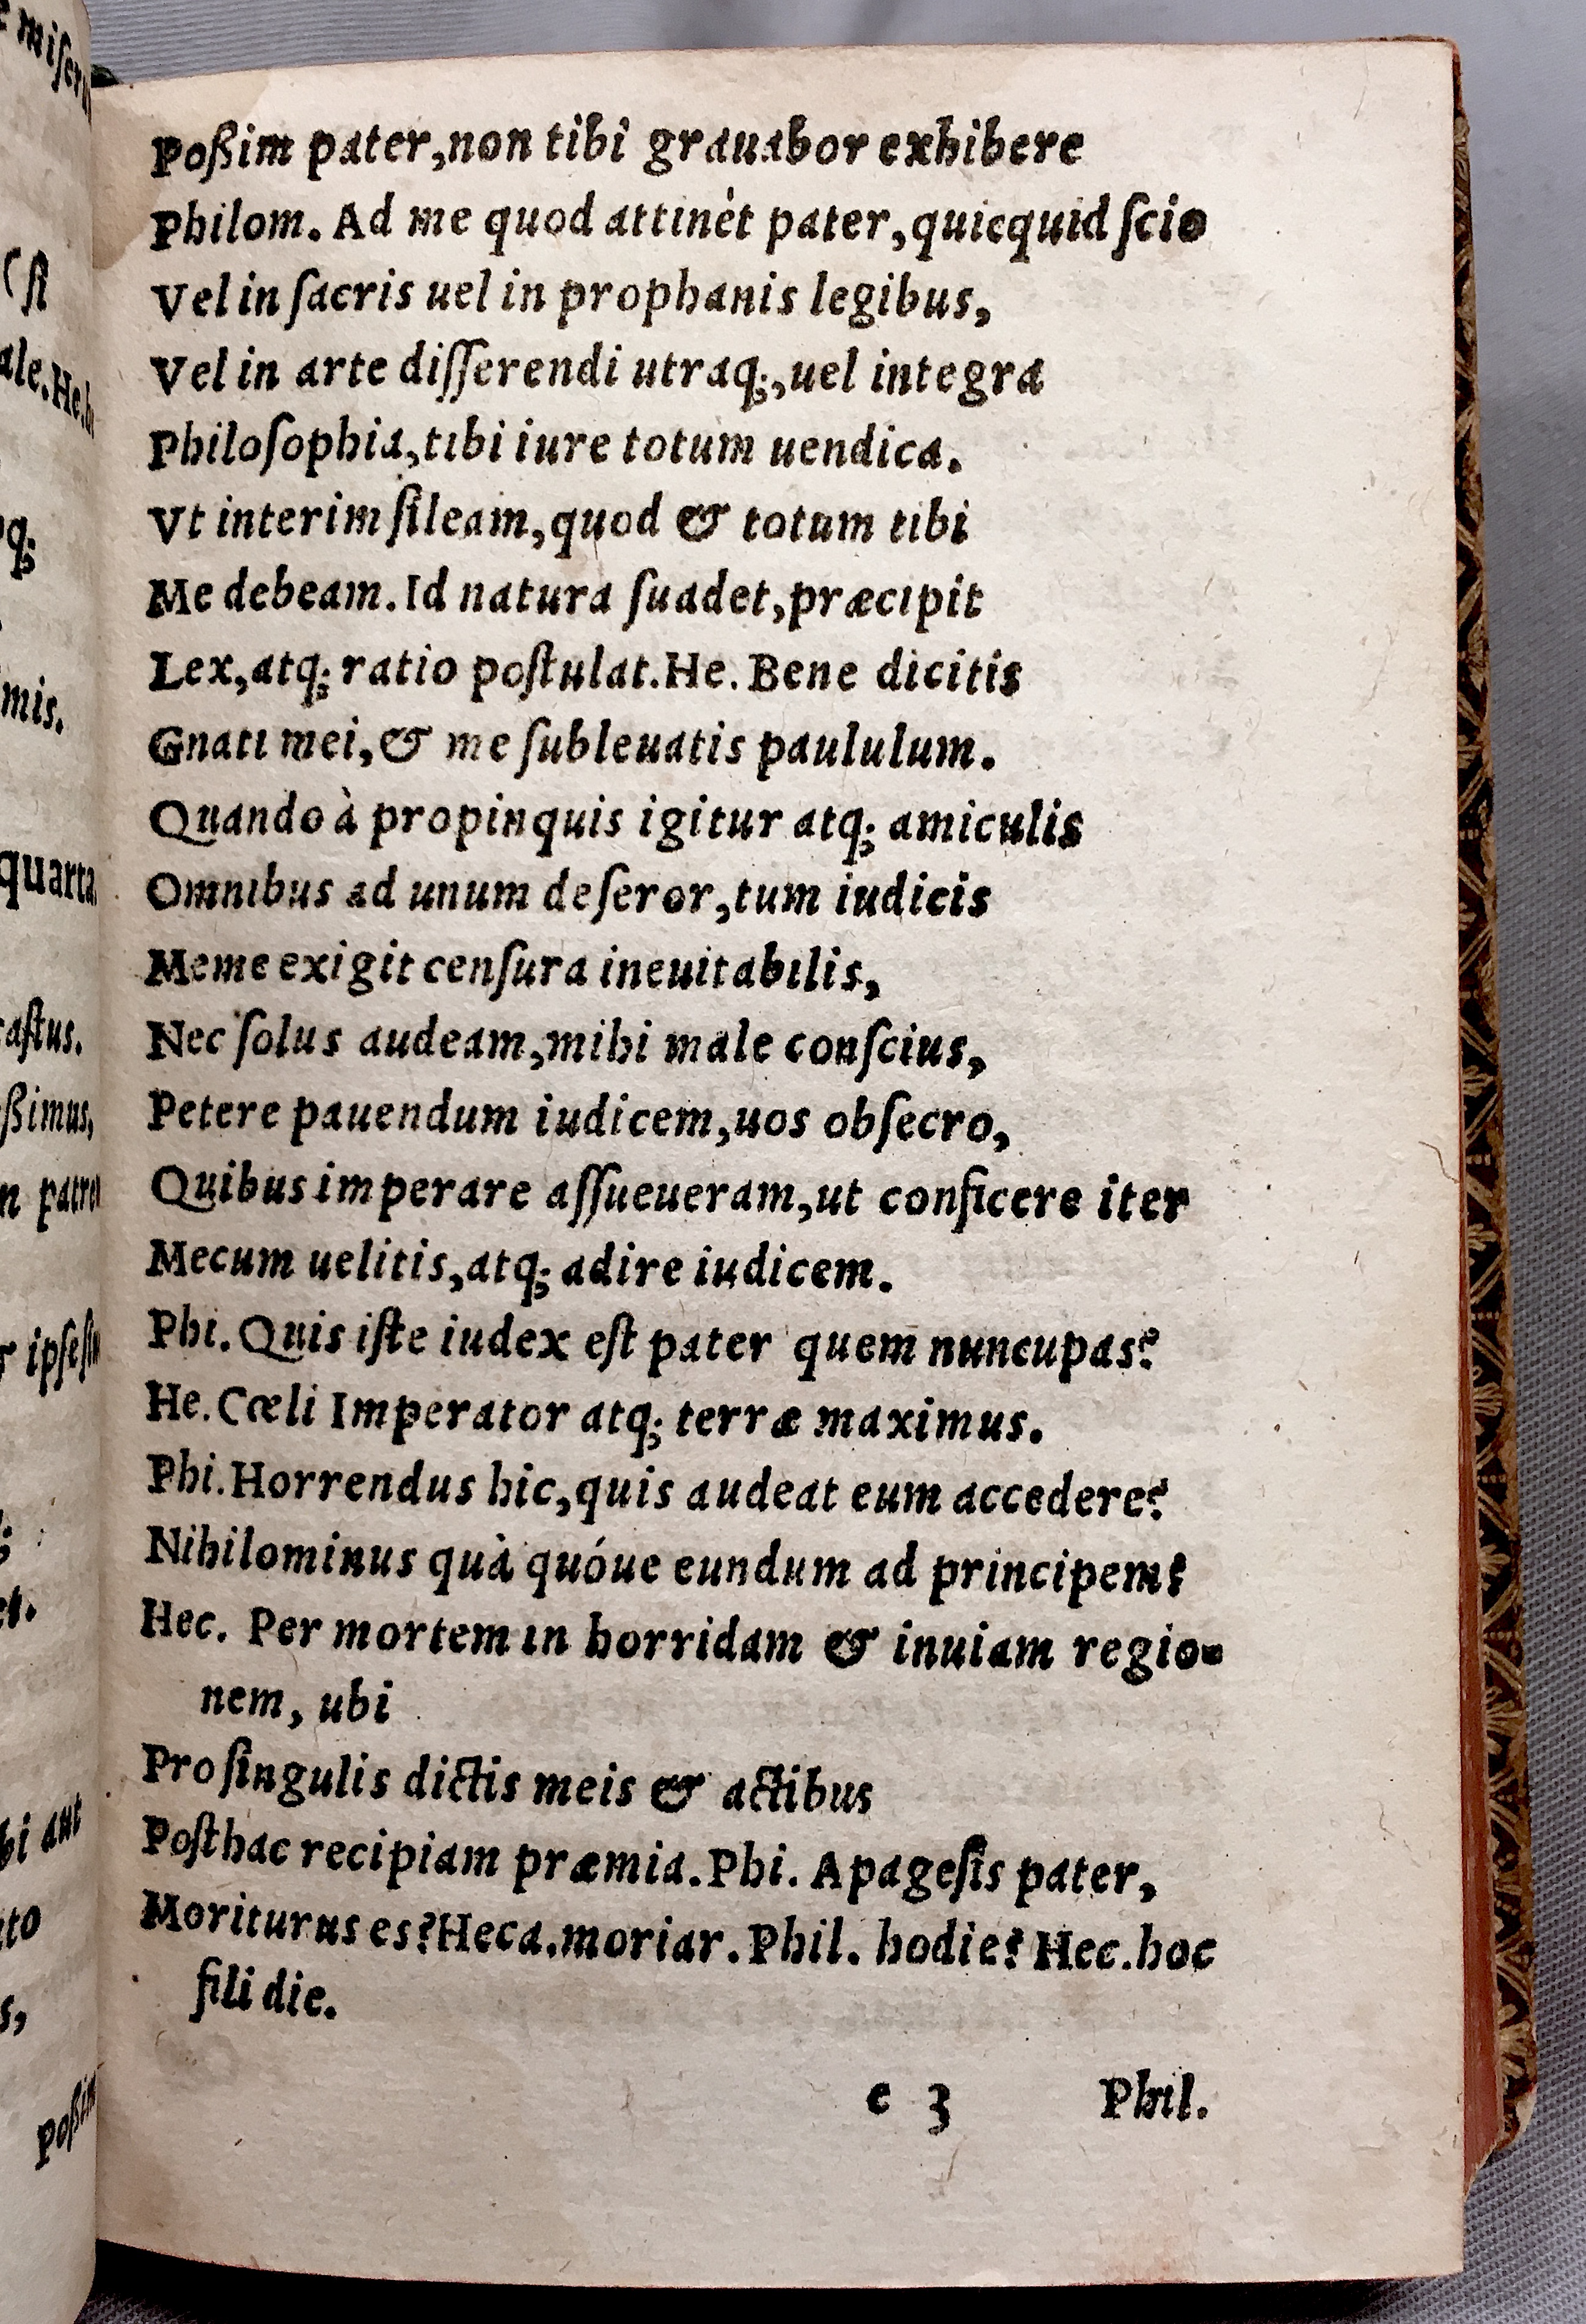 Poßim pater,non tibi grauabor exhibere
Philom. Ad me quod attinèt pater,quicquid ſcio
Vel in ſacris uel in prophanis legibus,
Vel in arte diſſerendi utraq;,uel integra
Philoſophia,tibi iure totum uendica.
Vt interim ſileam,quod & totum tibi
Me debeam. Id natura ſuadet,præcipit
Lex,atq; ratio poſtulat. He. Bene dicitis
Gnati mei,& me ſubleuatis paululum.
Quando à propinquis igitur atq; amiculis
Omnibus ad unum deſeror,tum iudicis
Meme exigit cenſura ineuitabilis,
Nec ſolus audeam,mihi male conſcius,
Petere pauendum iudicem,uos obſecro,
Quibus imperare aſſueueram,ut conficere iter
Mecum uelitis,atq; adire iudicem.
Phi. Quis iſte iudex eſt pater quem nuncupas?
He. Cœli Imperator atq; terræ maximus.
Phi. Horrendus hic,quis audeat eum accedere?
Nihilominus quà quóue eundum ad principem?
Hec. Per mortem in horridam & inuiam regio-
nem, ubi
Pro ſingulis dictis meis & actibus
Poſthac recipiam præmia. Phi. Apageſis pater,
Moriturus es? Heca. moriar. Phil. hodie? Hec. hoc
fili die.
c 3 Phil.